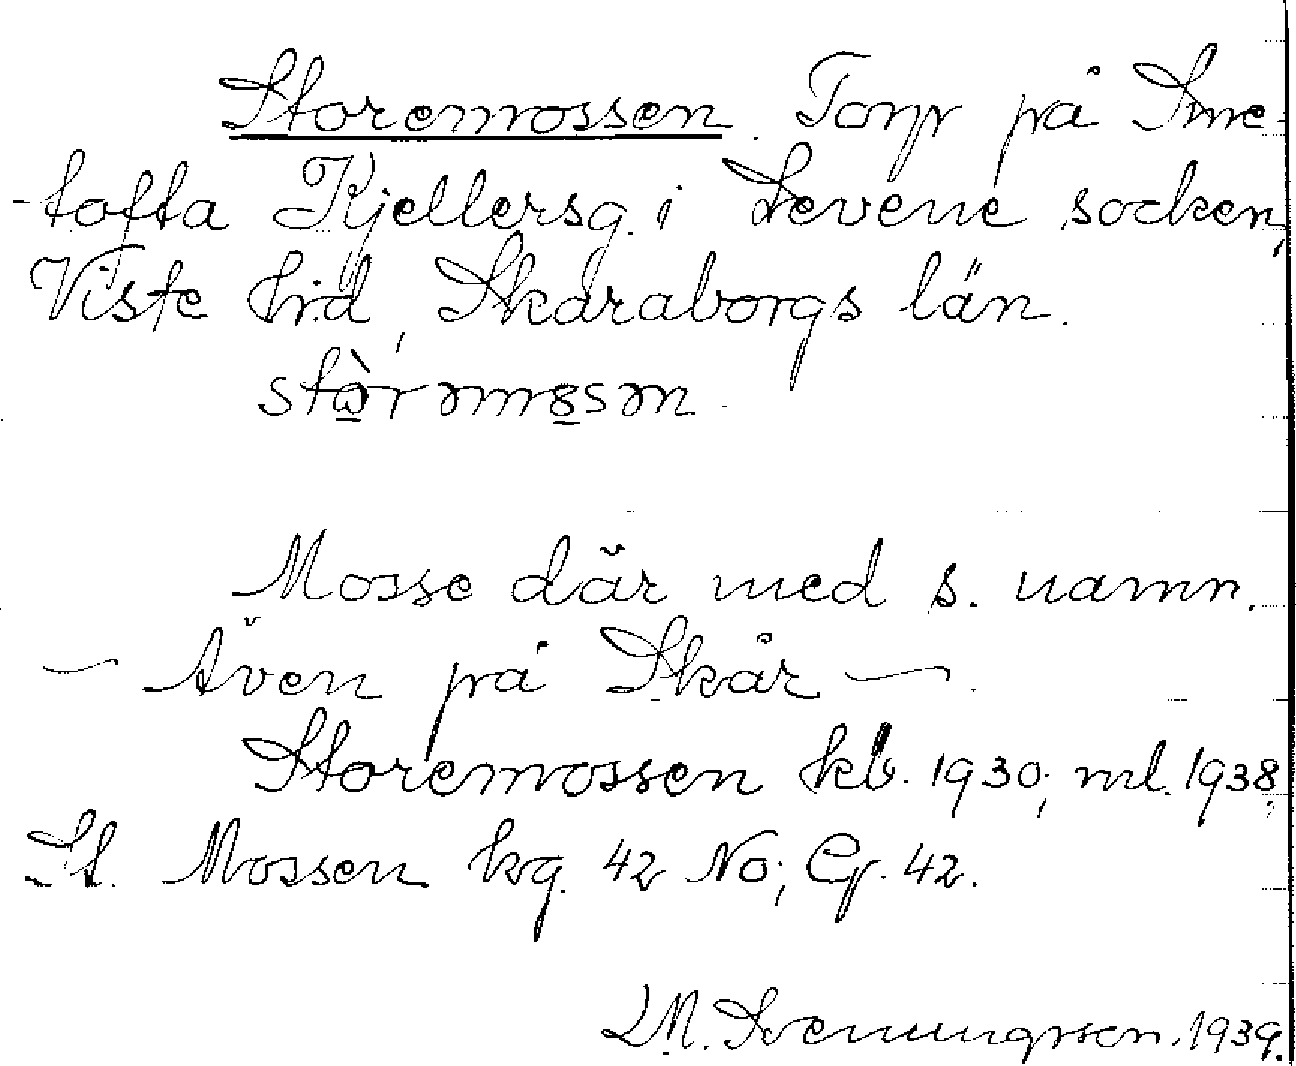 Storemossen. Torp på Sme-
-tofta Kjellersg. i Levene socken,
Viste hrd, Skaraborgs län.
Mosse där med s. namn.
— Även på Skår —.
Storemossen kb. 1930; ml. 1938;
St. Mossen kg. 42 No; Cg. 42.
M. Svenungsson. 1939.